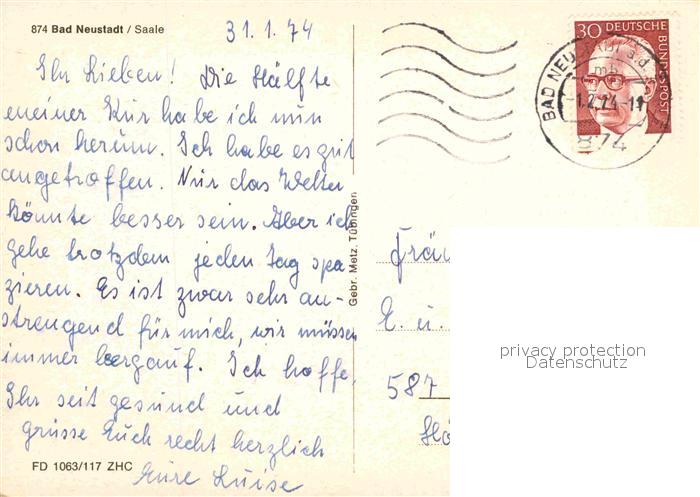 874 Bad Neustadt / Saale
31.1.74
Ihr Lieben! Die Hälfte
meiner Kur habe ich nun
schon herum. Ich habe es gut
angetroffen. Nur das Wetter
könnte besser sein. Aber ich
gehe trotzdem jeden Tag spa-
zieren. Es ist zwar sehr an-
strengend für mich, wir müssen
immer bergauf. Ich hoffe,
Ihr seit gesund und
grüsse Euch recht herzlich
Eure Luise
FD 1063/117 ZHC
Gebr. Metz, Tübingen
30 DEUTSCHE BUNDESPOST
BAD NEU
-1.2.74-11
874
Fräu
E. u.
587
privacy protection
Datenschutz